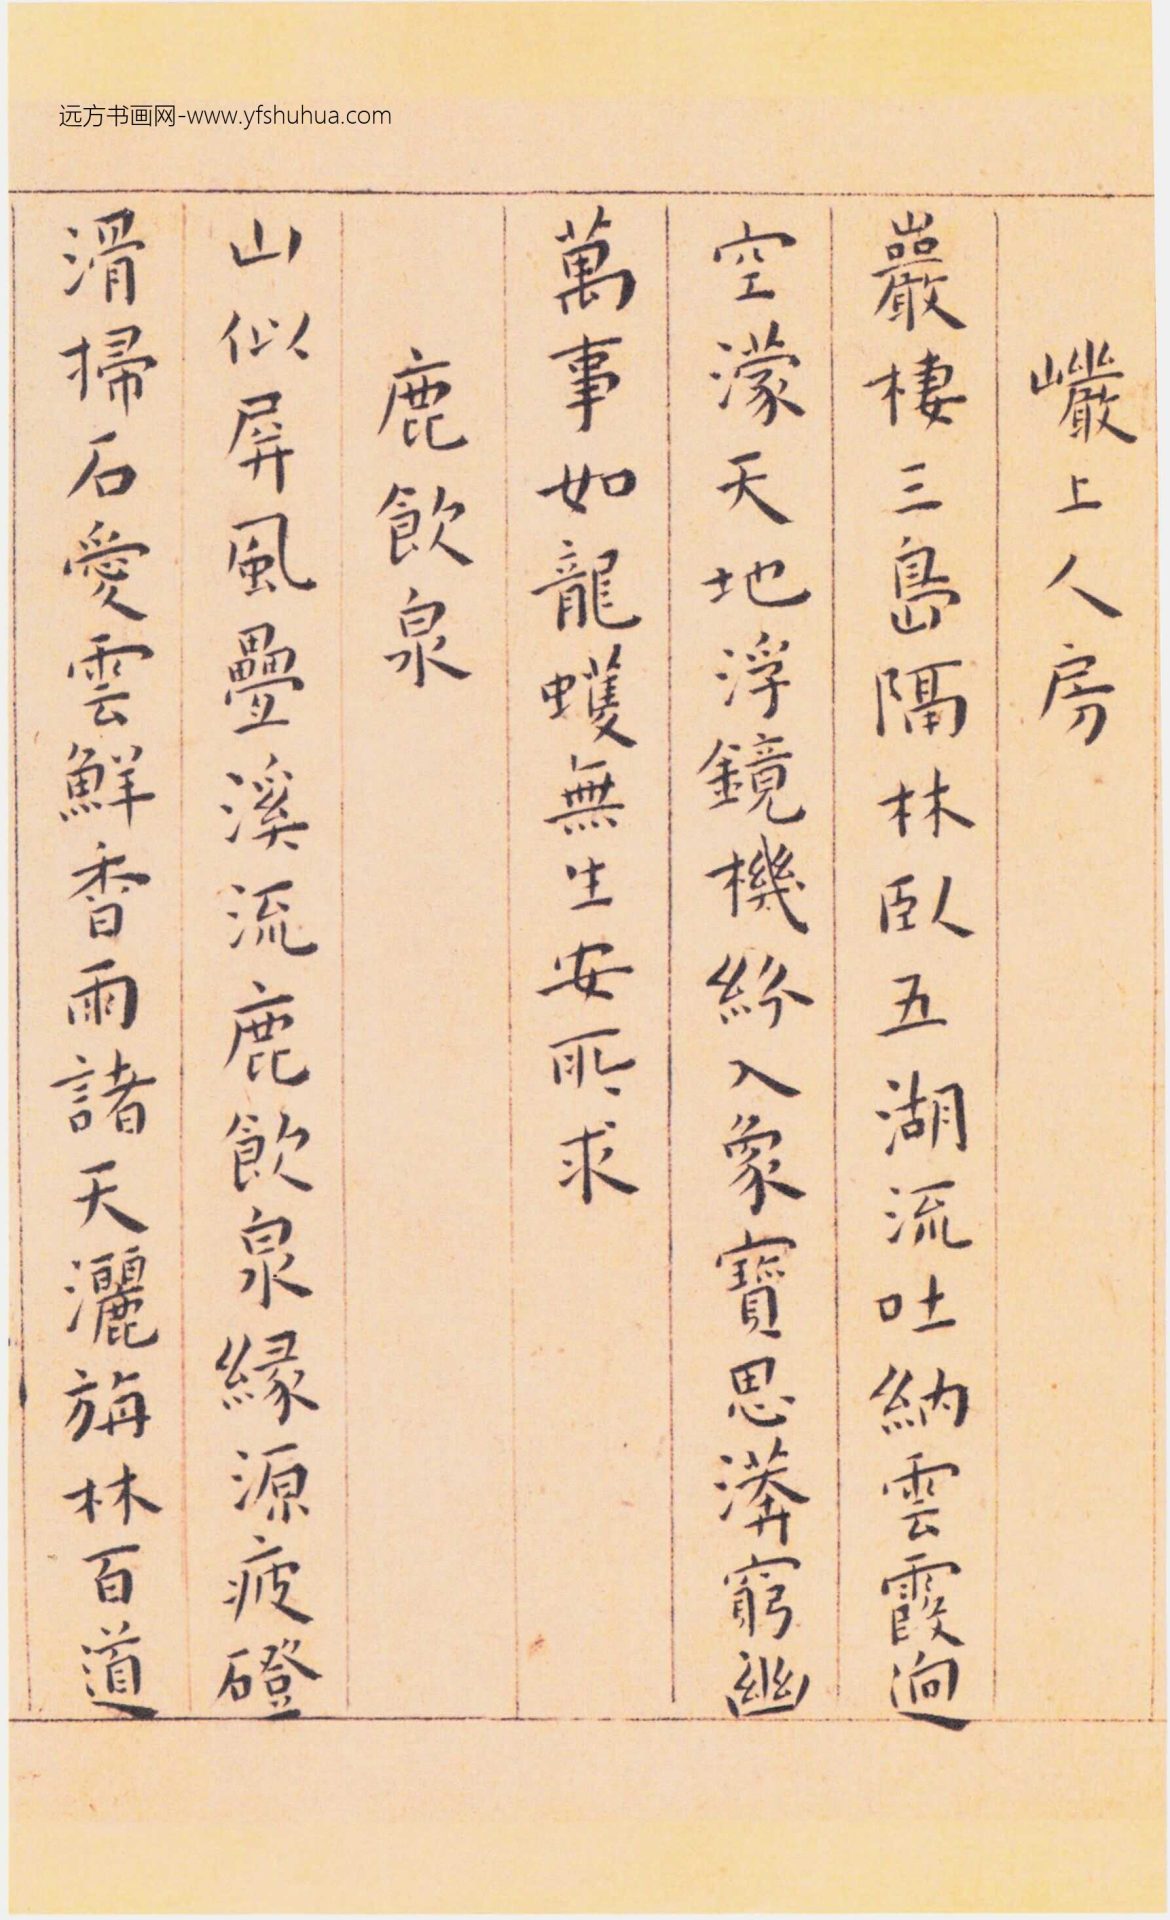 远方书画网-www.yfshuhua.com
巗上人房
巖棲三島隔林臥五湖流吐納雲霞迥
空濛天地浮鏡機紛入象寶思漭窮幽
萬事如龍蠖無生安所求
鹿飲泉
山似屏風疊溪流鹿飲泉緣源疲磴
滑掃石愛雲鮮香雨諸天灑旃林百道